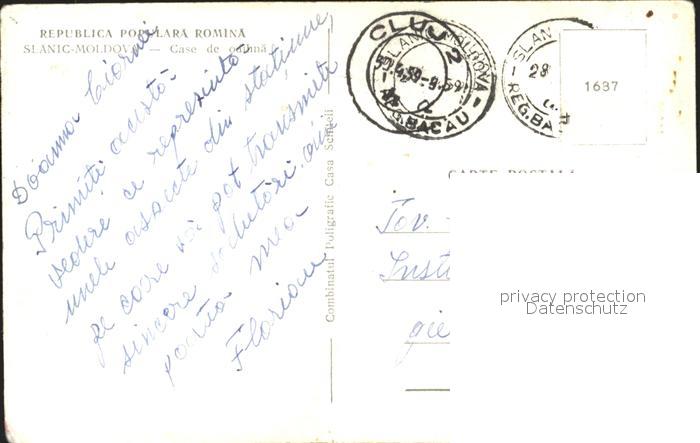 REPUBLICA POPULARA ROMINA
SLANIC-MOLDOVA — Case de odihnă
Doamna
Primiți această
vedere ce reprezintă
unele aspecte din stațiune,
pe care vă pot transmite
sincere salutări din
partea mea
Florian
Combinatul Poligrafic Casa Scînteii
CLUJ 2
SLANIC MOLDOVA
REG.BACAU
SLAN
28
REG.BA
1637
CARTE POSTALA
Tov.
Insti
gie
privacy protection
Datenschutz